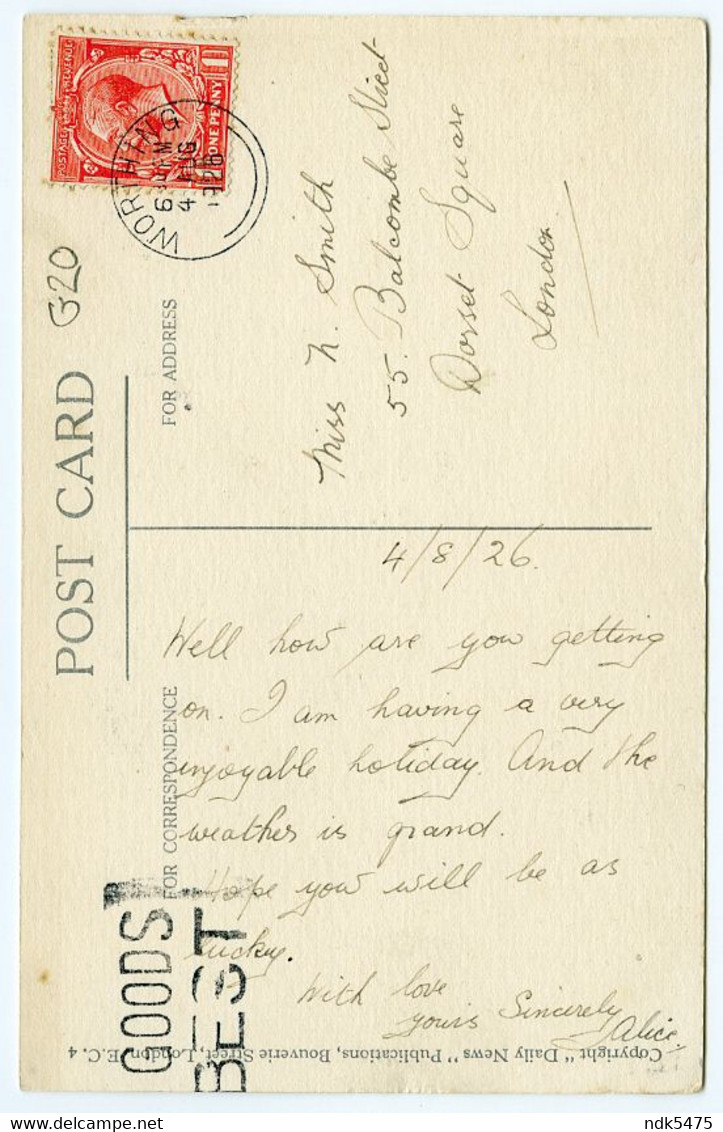 POSTAGE REVENUE
ONE PENNY
WORTHING
4 AUG
1926
G20
POST CARD
FOR ADDRESS
Miss N. Smith
55. Balcombe Street
Dorset Square
London.
FOR CORRESPONDENCE
4/8/26.
Well how are you getting
on. I am having a very
enjoyable holiday. And the
weather is grand.
Hope you will be as
lucky.
With love
yours Sincerely
Alice.
GOODS
BEST
Copyright "Daily News" Publications, Bouverie Street, London, E.C. 4
ndk5475